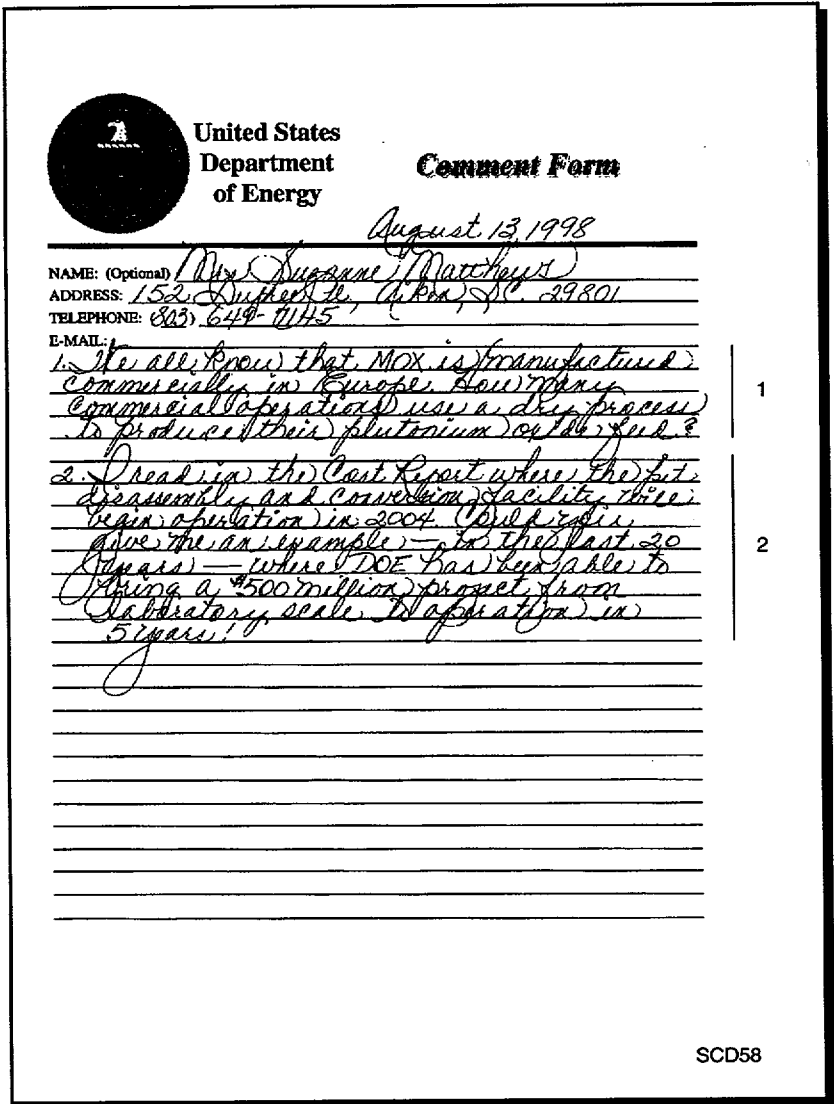 United States
Department
of Energy
Comment Form
August 13, 1998
NAME: (Optional) Suzanne Matthews
ADDRESS: 152 Aiken, SC. 29801
TELEPHONE: (803) 649-7145
E-MAIL:
1. We all know that MOX is manufactured
commercially in Europe. How many
commercial operations use a dry process
to produce their plutonium oxide feed?
1
2. I read in the Cost Report where the pit
disassembly and conversion facility will
begin operation in 2004. Could you
give me an example — in the last 20
years — where DOE has been able to
bring a $500 million project from
laboratory scale to operation in
5 years!
2
SCD58